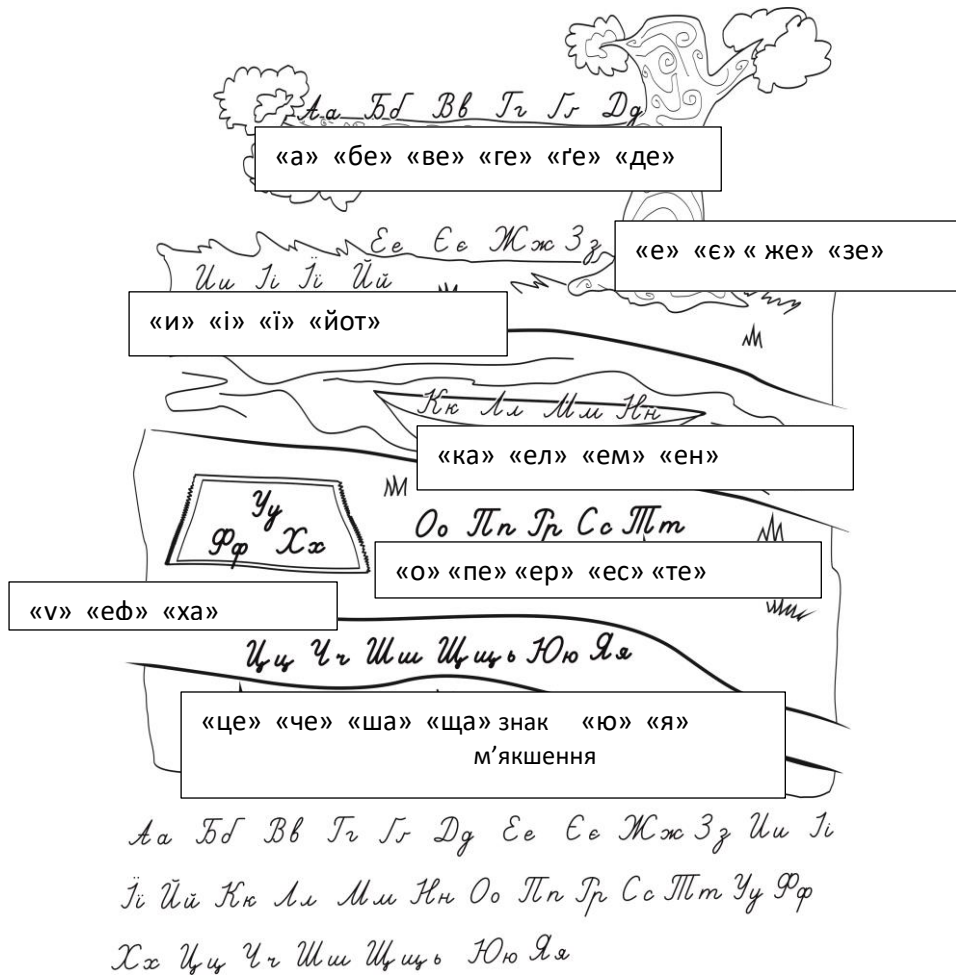 Аа Бб Вв Гг Ґґ Дд
«а» «бе» «ве» «ге» «ґе» «де»
Ее Єє Жж Зз
«е» «є» « же» «зе»
Ии Іі Її Йй
«и» «і» «ї» «йот»
Кк Лл Мм Нн
«ка» «ел» «ем» «ен»
Уу
Фф Хх
Оо Пп Рр Сс Тт
«о» «пе» «ер» «ес» «те»
«у» «еф» «ха»
Цц Чч Шш Щщь Юю Яя
«це» «че» «ша» «ща» знак «ю» «я»
м’якшення
Аа Бб Вв Гг Ґґ Дд Ее Єє Жж Зз Ии Іі
Її Йй Кк Лл Мм Нн Оо Пп Рр Сс Тт Уу Фф
Хх Цц Чч Шш Щщь Юю Яя